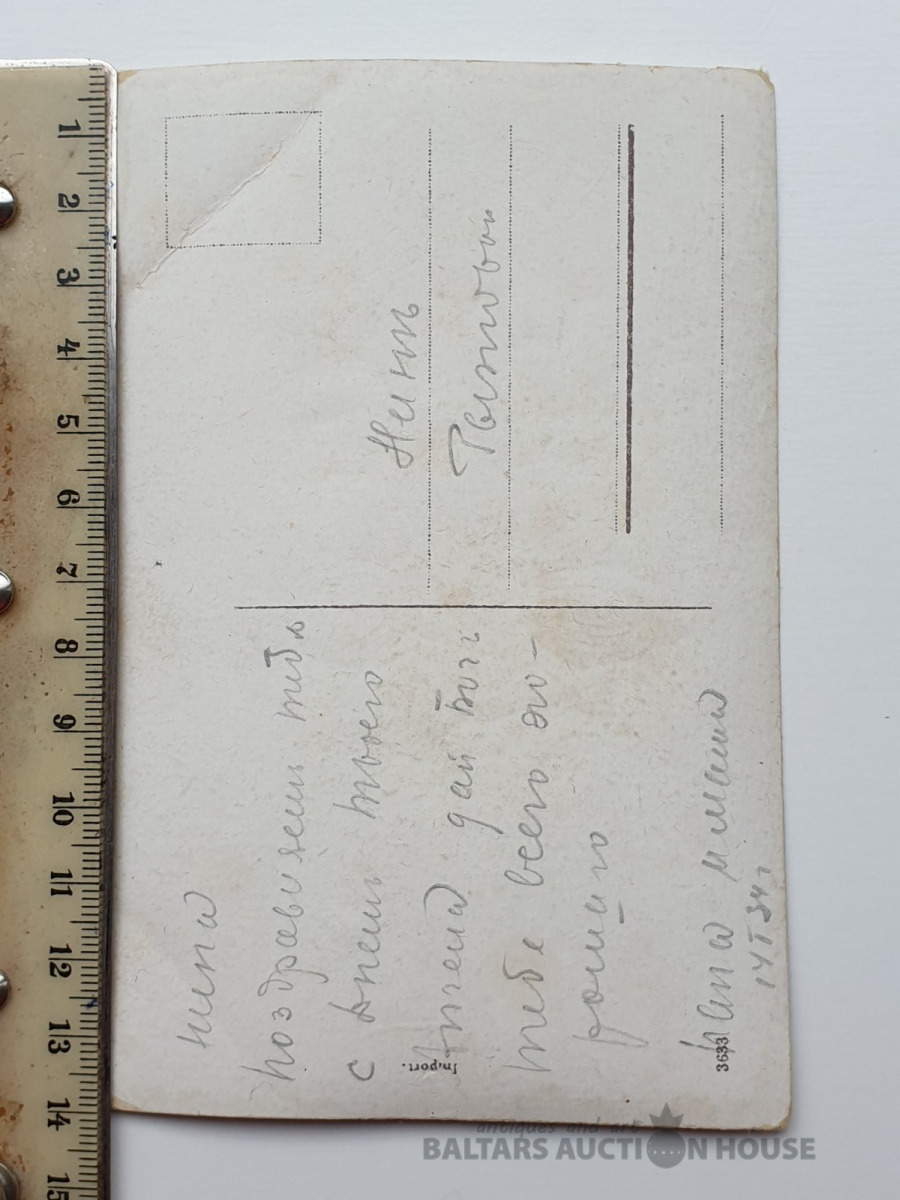 Нина
поздравляем тебя
с днем твоего
Ангела дай Богъ
тебе всего хо-
рошаго
папа и мама
14 I 34 г
Нинѣ
3633
Import.
1 2 3 4 5 6 7 8 9 10 11 12 13 14 15
antiques and art
BALTARS AUCTION HOUSE